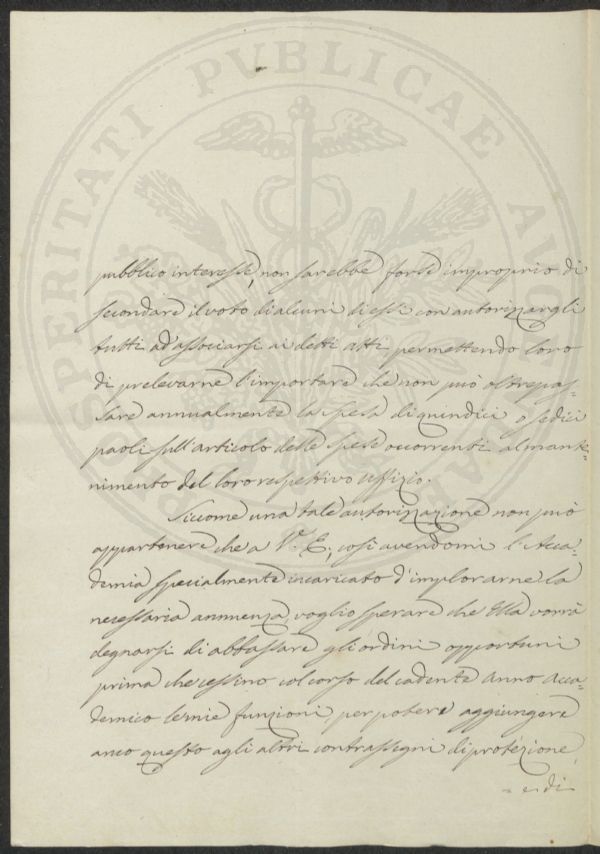 PROSPERITATI PVBLICAE AVGENDAE
pubblico interesse, non sarebbe forse improprio di
secondare il voto di alcuni di essi con autorizzargli
tutti ad associarsi ai detti atti permettendo loro
di prelevarne l'importare che non può oltrepas-
sare annualmente la spesa di quindici o sedici
paoli sull'articolo delle spese occorrenti al mante-
nimento del loro respettivo uffizio.
Siccome una tale autorizzazione non può
appartenere che a V. E., così avendomi l'Acca-
demia specialmente incaricato d'implorarne la
necessaria annuenza, voglio sperare che Ella vorrà
degnarsi di abbassare gli ordini opportuni
prima che cessino col corso del cadente anno Acca-
demico le mie funzioni, per potere aggiungere
anco questo agli altri contrassegni di protezione,
e di